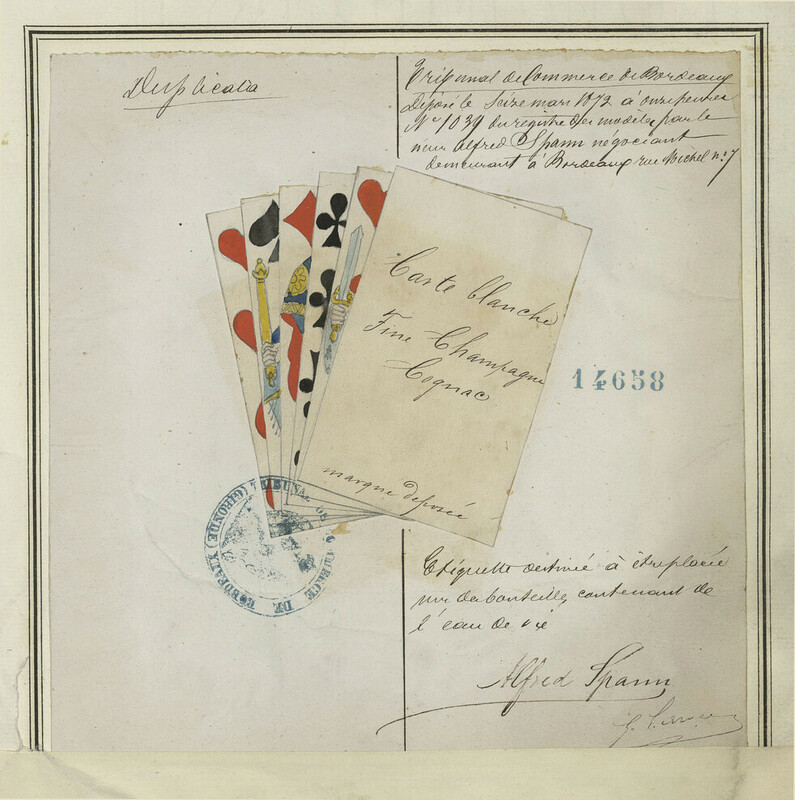 Duplicata
Tribunal de Commerce de Bordeaux
Déposé le seize mars 1872 à onze heures
No 1034 du registre des modèles par le
sieur Alfred Spann négociant
demeurant à Bordeaux rue Michel no 7
Carte blanche
Fine Champagne
Cognac
marque déposée
14658
TRIBUNAL DE COMMERCE DE BORDEAUX (GIRONDE)
Etiquette destinée à être placée
sur des bouteilles contenant de
l'eau de vie
Alfred Spann